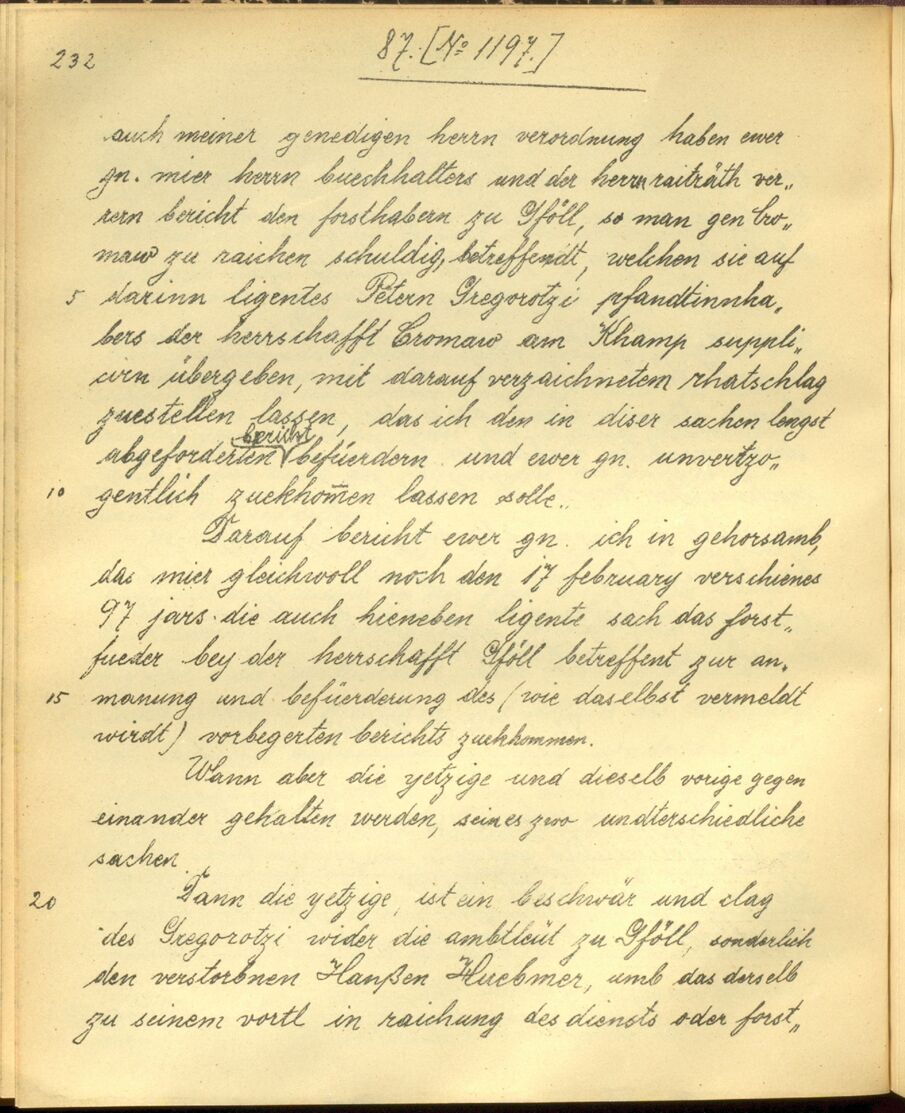 232
87. [No 1197.]
auch meiner genedigen herrn verordnung haben ewer
gn. mier herrn buechhalters und der herrn raiträth ver„
rern bericht den forsthabern zu Gföll, so man gen Cro„
maw zu raichen schuldig, betreffendt, welchen sie auf
5 darinn ligentes Petern Gregorotzi pfandtinnha„
bers der herrschafft Cromaw am Khamp suppli„
cirn übergeben, mit darauf verzaichnetem rhatschlag
zuestellen lassen, das ich den in diser sachen lengst
bericht
abgeforderten befüerdern und ewer gn. unvertzo„
10 gentlich zuekhom̅en lassen solle..
Darauf bericht ewer gn. ich in gehorsamb,
das mier gleichwoll noch den 17 february verschienes
97 jars die auch hieneben ligente sach das forst„
fueder bey der herrschafft Gföll betreffent zur an„
15 manung und befüerderung des (wie daselbst vermeldt
wirdt) vorbegerten berichts zuekhommen.
Wann aber die yetzige und dieselb vorige gegen
einander gehalten werden, seines zwo undterschiedliche
sachen.
20 Dann die yetzige, ist ein beschwär und clag
des Gregorotzi wider die ambtleüt zu Gföll, sonderlich
den verstorbnen Hanßen Huebmer, umb das derselb
zu seinem vortl in raichung des diensts oder forst„